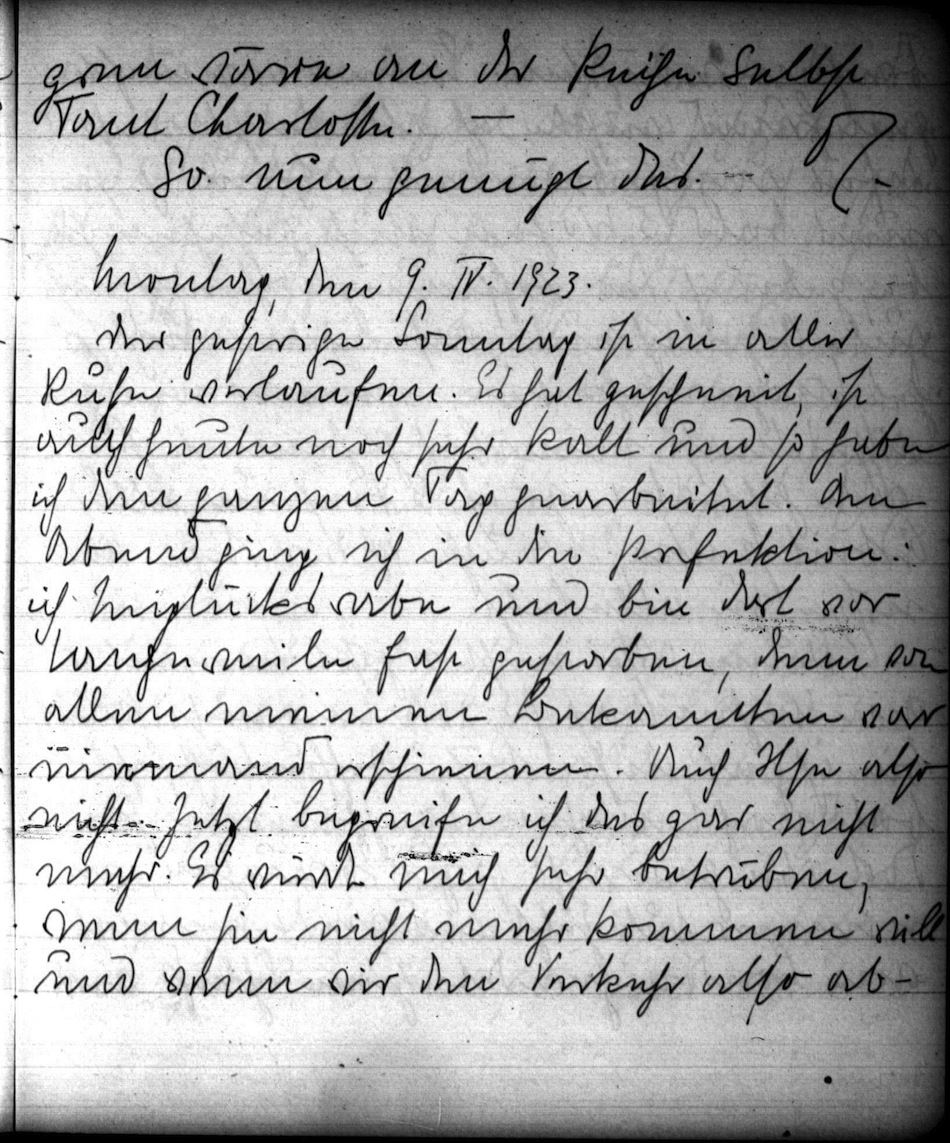 gern wäre an der Reihe selbst
Tant Charlotte. —
So. nun genügt das.
Montag, den 9. IV. 1923.
Der gestrige Sonntag ist in aller
Ruhe verlaufen. Es hat geschneit, ist
auch heute noch sehr kalt und so habe
ich den ganzen Tag gearbeitet. Am
Abend ging ich in die
ich Unglücksrabe und bin dort vor
Langerweile fast gestorben, denn von
allen meinen Bekannten war
niemand erschienen. Auch Ilse also
nicht. Jetzt begreife ich das gar nicht
mehr. Es würde mich sehr betrüben,
wenn sie nicht mehr kommen will
und wenn wir den Verkehr also ab-